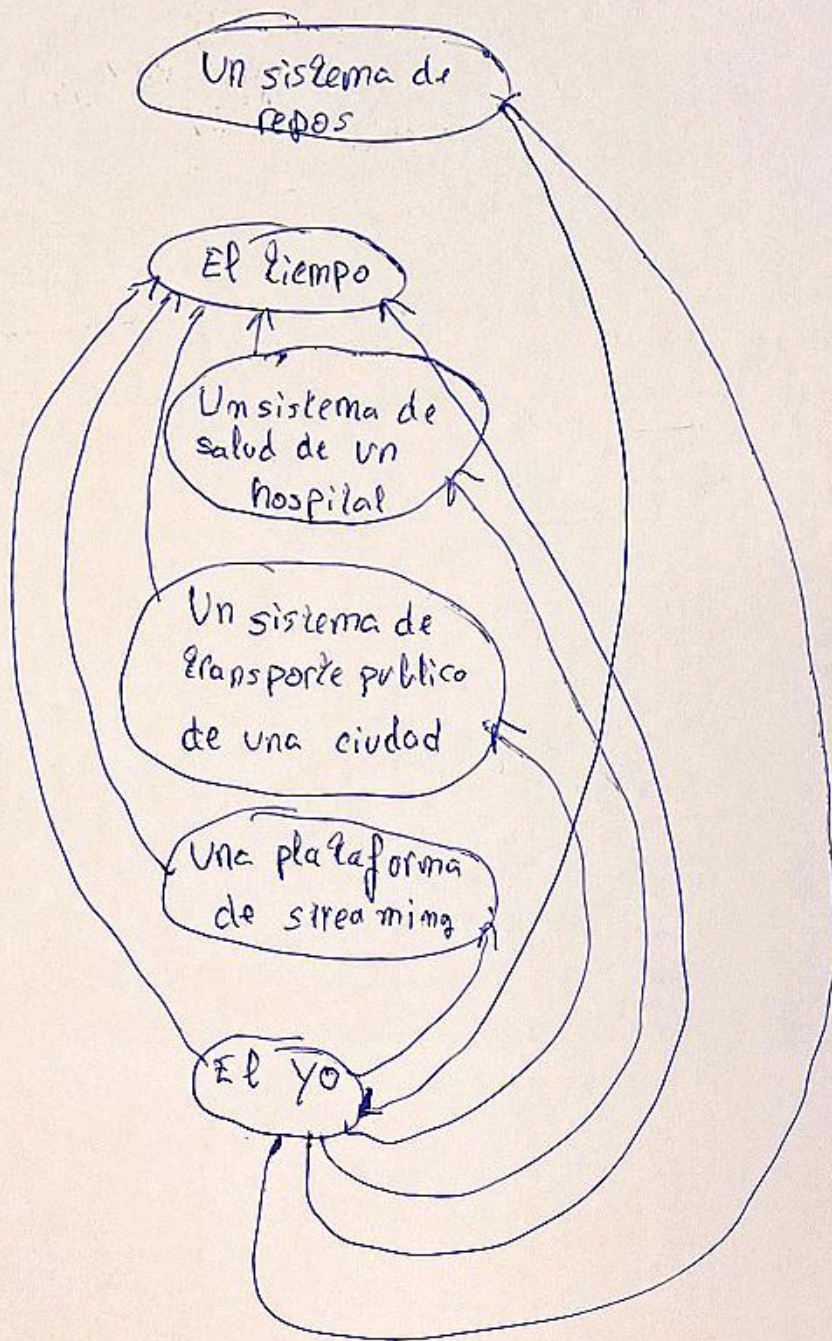 Un sistema de
repos
El tiempo
Un sistema de
salud de un
hospital
Un sistema de
transporte publico
de una ciudad
Una plataforma
de streaming
El YO